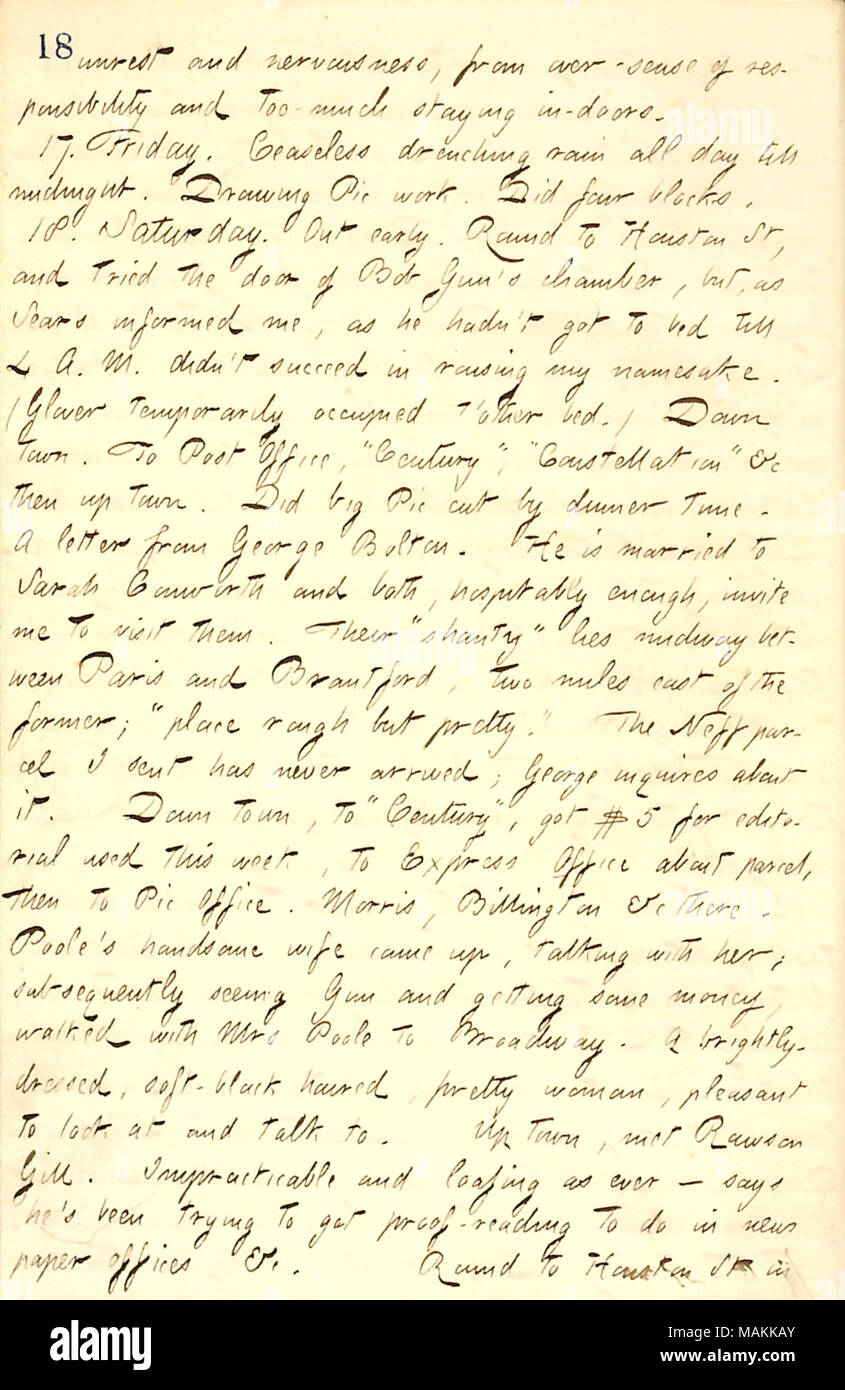 18
unrest and nervousness, from over-sense of res-
ponsibility and too-much staying in-doors.
17. Friday. Ceaseless drenching rain all day till
midnight. Drawing Pic work. Did four blocks.
18. Saturday. Out early. Round to Houston St,
and tried the door of Bob Gun's chamber, but, as
Sears informed me, as he hadn't got to bed till
4 A. M. didn't succeed in raising my namesake.
(Glover temporarily occupied t'other bed.) Down
town. To Post Office, "Century", "Constellation" &c
then up town. Did big Pic cut by dinner time.
A letter from George Bolton. He is married to
Sarah Conworth and both, hospitably enough, invite
me to visit them. Their "shanty" lies midway bet-
ween Paris and Brantford, two miles east of the
former; "place rough but pretty." The Neff par-
cel I sent has never arrived; George inquires about
it. Down town, to "Century", got $5 for edito-
rial used this week, to Express Office about parcel,
then to Pic Office. Morris, Billington &c there.
Poole's handsome wife came up, talking with her;
subsequently seeing Gun and getting some money,
walked with Mrs Poole to Broadway. A brightly-
dressed, soft-black haired, pretty woman, pleasant
to look at and talk to. Up town, met Rawson
Gill. Impracticable and loafing as ever — says
he's been trying to get proof-reading to do in news
paper offices &c. Round to Houston St in
alamy
Image ID: MAKKAY
www.alamy.com